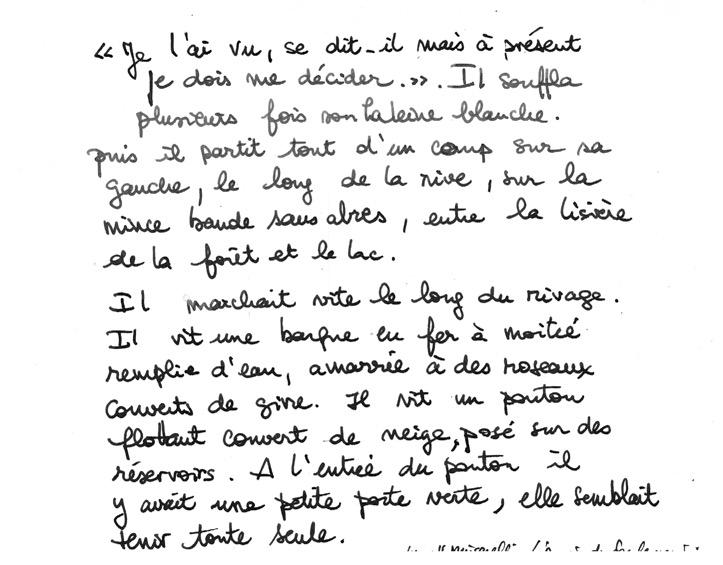 « Je l'ai vu, se dit-il mais à présent
je dois me décider.». Il souffla
plusieurs fois son haleine blanche.
puis il partit tout d'un coup sur sa
gauche, le long de la rive, sur la
mince bande sans abres, entre la lisière
de la forêt et le lac.
Il marchait vite le long du rivage.
Il vit une barque en fer à moitié
remplie d'eau, amarrée à des roseaux
couverts de givre. Il vit un ponton
flottant couvert de neige, posé sur des
réservoirs. A l'entrée du ponton il
y avait une petite porte verte, elle semblait
tenir toute seule.